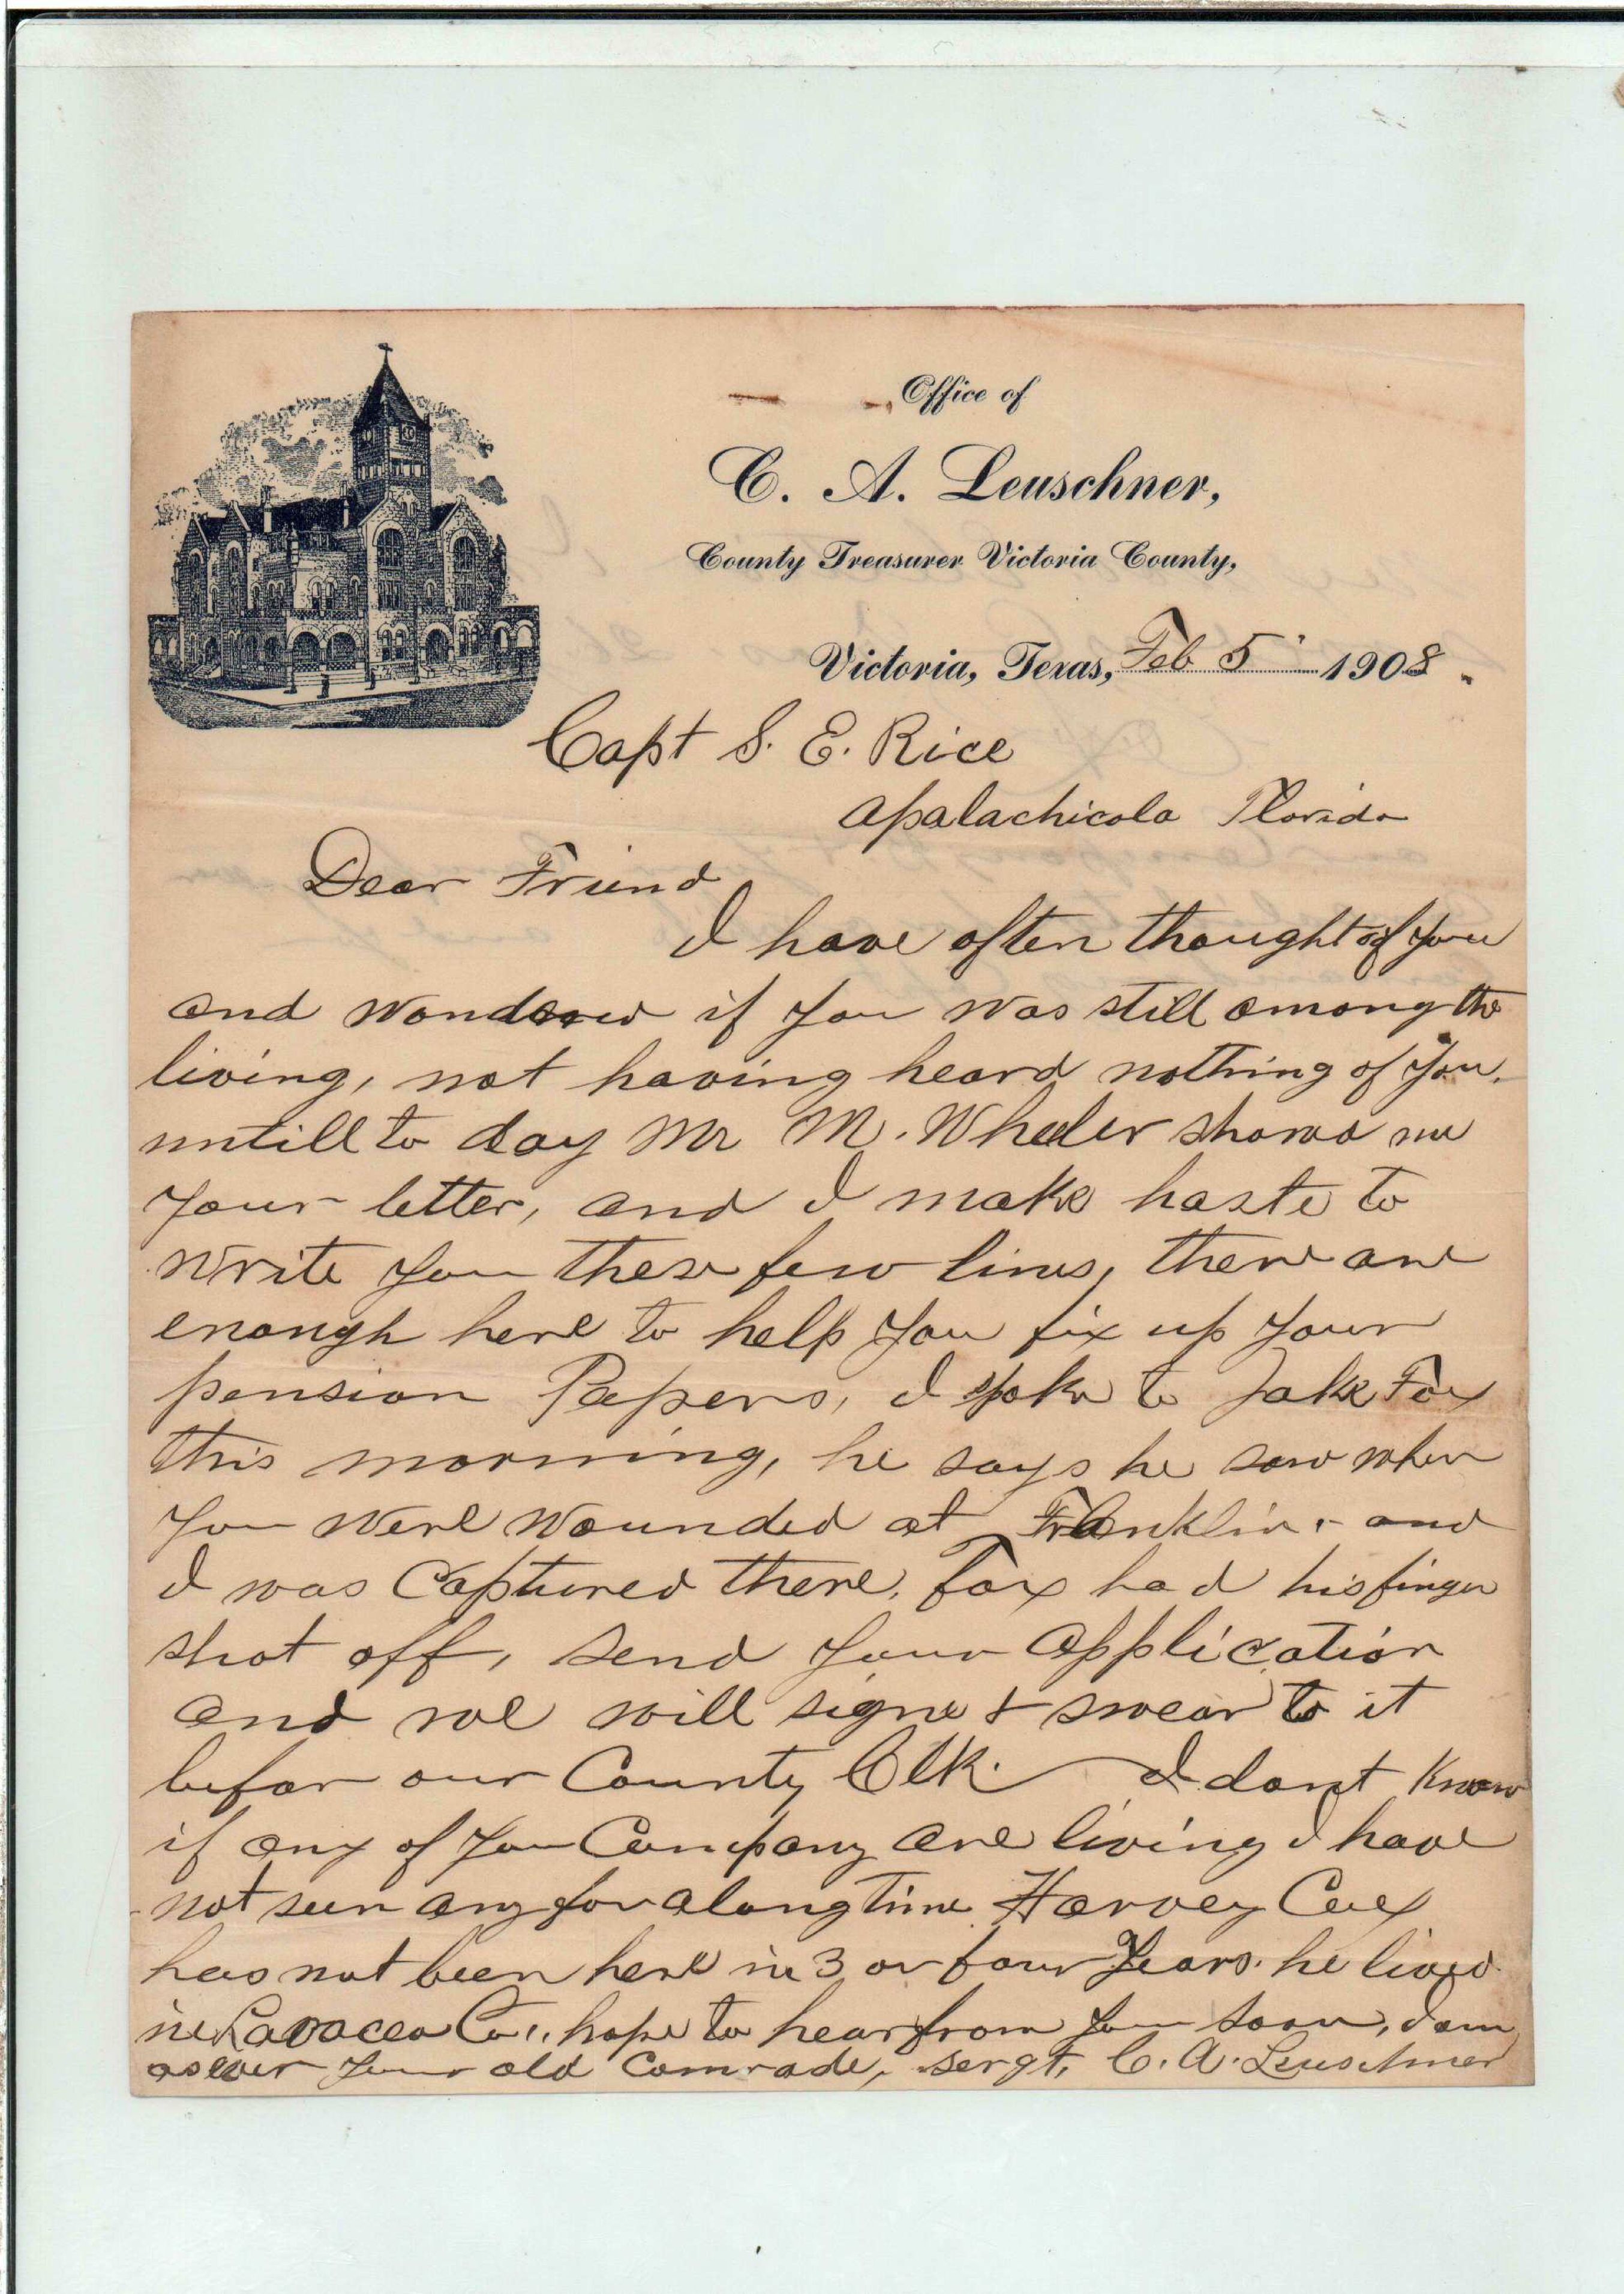 Office of
C. A. Leuschner,
County Treasurer Victoria County,
Victoria, Texas, Feb 5 1908.
Capt S. E. Rice
Apalachicola Florida
Dear Friend
I have often thought of you
and wondered if you was still among the
living, not having heard nothing of you.
untill to day Mr M. Wheeler showed me
your letter, and I make haste to
write you these few lines, there are
enough here to help you fix up your
pension Papers, I spoke to Jake Fox
this morning, he says he saw when
you were wounded at Franklin, and
I was Captured there, Fox had his finger
shot off, send your application
and we will signe & swear to it
befor our County Clk. I dont Know
if any of you Company are living I have
not seen any for a long time Harvey
has not been here in 3 or four Years. he lived
in Lavacca Co., hope to hear from you soon, I am
as ever your old Comrade, sergt, C. A. Leuschner